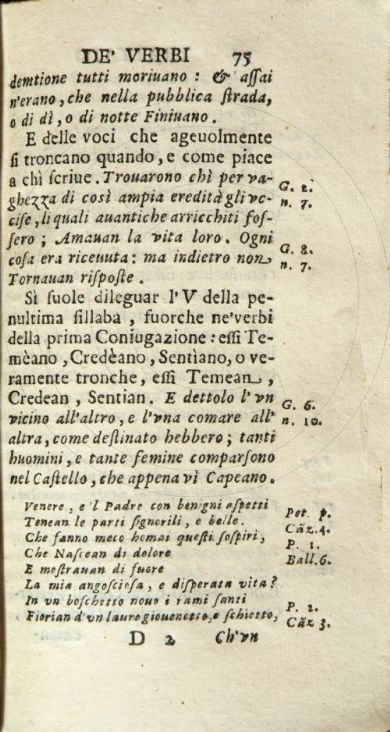 DE' VERBI 75
demtione tutti moriuano : & assai
n'erano, che nella pubblica strada,
o di dì, o di notte Finiuano.
E delle voci che ageuolmente
si troncano quando, e come piace
a chì scriue. Trouarono chì per va-
ghezza di così ampia eredità gli vc- G. 2.
cise, li quali auantiche arricchiti fos- n. 7.
sero ; Amauan la vita loro. Ogni
cosa era riceuuta : ma indietro non G. 8.
Tornauan risposte. n. 7.
Sì suole dileguar l'V della pe-
nultima sillaba, fuorche ne'verbi
della prima Coniugazione : essi Te-
mèano, Credèano, Sentìano, o ve-
ramente tronche, essi Temean,
Credean, Sentian. E dettolo l'vn
vicino all'altro, e l'vna comare all' G. 6.
altra, come destinato hebbero ; tanti n. 10.
huomini, e tante femine comparsono
nel Castello, che appena vì Capeano.
Venere, e 'l Padre con benigni aspetti
Tenean le parti signorili, e belle. Pet. p.
Che fanno meco homai questi sospiri, Cãz. 4.
Che Nascean di dolore P. 1.
E mostrauan di fuore Ball. 6.
La mia angosciosa, e disperata vita?
In vn boschetto nouo i rami santi P. 2.
Fiorian d'vn lauro giouenetto, e schietto, Cãz 3.
D 2 Ch'vn